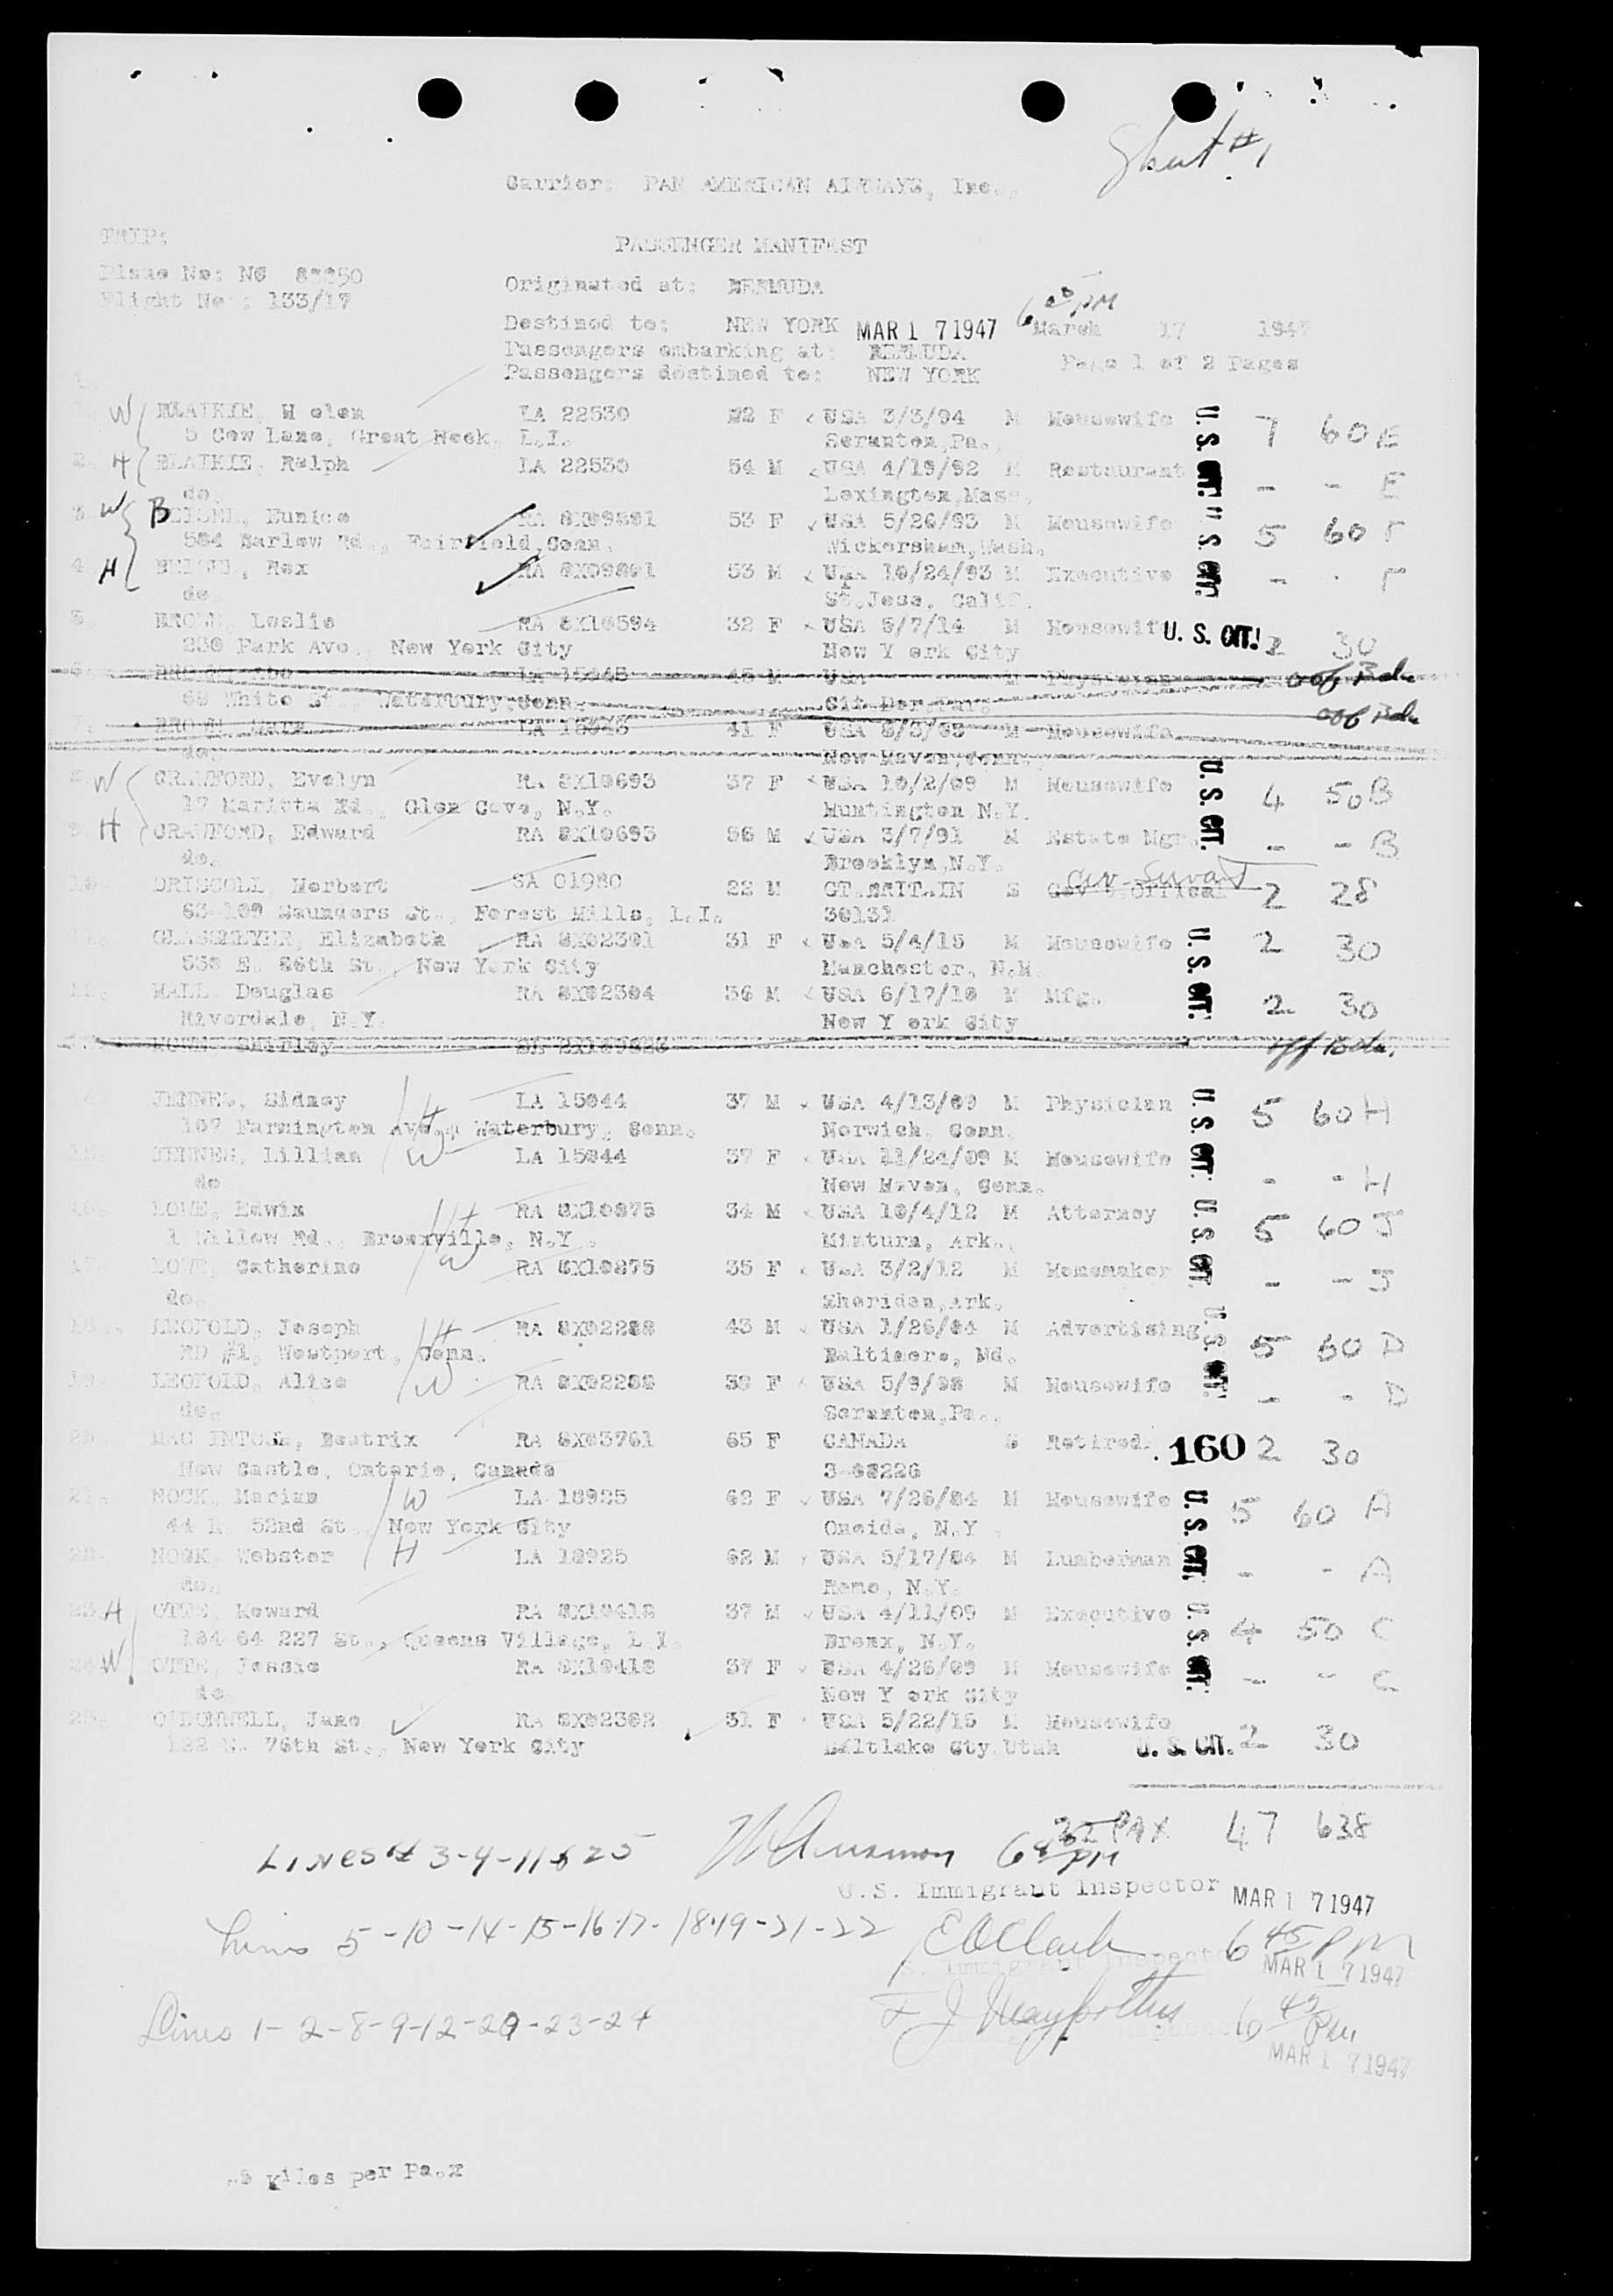 Sheet #1
Carrier: PAN AMERICAN AIRWAYS, Inc.,
TRIP:
PASSENGER MANIFEST
Plane No: NC
Originated at: BERMUDA
Flight No.: 133/17
6 PM
Destined to: NEW YORK MAR 17 1947 March 17 1947
Passengers embarking at: BERMUDA
Page 1 of 2 Pages
Passengers destined to: NEW YORK
W BLAIKIE, H elen LA 22530 F USA 3/3/94 M Housewife U. S. CIT. 7 60 E
5 Cow Lane, Great Neck, L.I. Scranton,Pa.,
2. H BLAIKIE, Ralph LA 22530 54 M USA 4/19/92 M Restaurant - - E
do. Lexington,Mass.
3. W Eunice 53 F USA 5/26/93 M Housewife U. S. CIT. 5 60 F
Barlow Rd., Fairfield,Conn. Nickersham,Wash.
4. H Rex 53 M USA 10/24/93 M Executive - - F
do. St.Jose, Calif.
5. BROWN, Leslie RA 8X10594 32 F USA M Housewife U. S. CIT. 2 30
230 Park Ave., New York City New Y ork City
6. LA 15045 45 M USA M Physician off Bda
69 White St., Waterbury,Conn.
7. BROWN, LA 15045 41 F USA M Housewife off Bda
do. New Haven,Conn.
8. W CRAWFORD, Evelyn RA 8X10693 37 F USA 10/2/09 M Housewife U. S. CIT. 4 50 B
Glen Cove, N.Y. Huntington N.Y.
9. H CRAWFORD, Edward RA 8X10693 56 M USA 3/7/91 M Estate Mgr. - - B
do. Brooklyn,N.Y.
10. DRISCOLL, Herbert SA 01980 22 M GT.BRITAIN S Gov't.Offical 2 28
63-109 Saunders St., Forest Hills, L.I. 30131
11. GLASSMEYER, Elizabeth RA 8X02301 31 F USA 5/4/15 M Housewife U. S. CIT. 2 30
E. 86th St., New York City Manchester, N.H.
12. HALL, Douglas RA 8X02304 36 M USA 6/17/10 M Mfg. 2 30
Riverdale, N.Y. New Y ork City
Shirley off Bda.
JENNES, Sidney H LA 15044 37 M USA 4/13/09 M Physician U. S. CIT. 5 60 H
107 Farmington Ave., Waterbury, Conn. Norwich, Conn.
15. JENNES, Lillian W LA 15044 37 F USA 11/24/09 M Housewife - - H
do New Haven, Conn.
16. LOWE, Edwin H RA 8X10875 34 M USA 10/4/12 M Attorney U. S. CIT. 5 60 J
1 Willow Rd., Bronxville, N.Y. Mintura, Ark.,
17. LOWE, Catherine W RA 8X10875 35 F USA 3/2/12 M Homemaker - - J
do. Sheridan,Ark.
18. LEOPOLD, Joseph H RA 8X02288 43 M USA 1/26/04 M Advertising U. S. CIT. 5 60 D
RD #1, Westport, Conn. Baltimore, Md.
19. LEOPOLD, Alice W RA 8X02288 38 F USA 5/9/08 M Housewife - - D
do. Scranton,Pa.,
20. MAC INTOSH, Beatrix RA 8X03761 65 F CANADA S Retired. 160 2 30
New Castle, Ontario, Canada 3-68226
21. NOCK, Marian W LA 18925 62 F USA 7/26/84 M Housewife U. S. CIT. 5 60 A
44 E. 52nd St., New York City Oneida, N.Y.
22. NOCK, Webster H LA 18925 62 M USA 5/17/84 M Lumberman - - A
do. Rome, N.Y.
23. H OTTE, Howard RA 8X10418 37 M USA 4/11/09 M Executive U. S. CIT. 4 50 C
184-64 227 St., Queens Village, L.I. Bronx, N.Y.
24. W OTTE, Jessie RA 8X10418 37 F USA 4/26/09 M Housewife - - C
do. New Y ork City
25. O'DONNELL, Jane RA 8X02302 31 F USA 5/22/15 M Housewife
122 E. 76th St., New York City Saltlake Cty Utah U. S. CIT. 2 30
22 PAX 47 638
Lines # 3-4-11 & 25 6 45 PM
U.S. Immigrant Inspector MAR 17 1947
Lines 5-10-14-15-16-17-18-19-21-22 E O Clark 6 45 PM
U.S. Immigrant Inspector MAR 17 1947
Lines 1-2-8-9-12-20-23-24 6 45 PM
MAR 17 1947
kilos per Pax